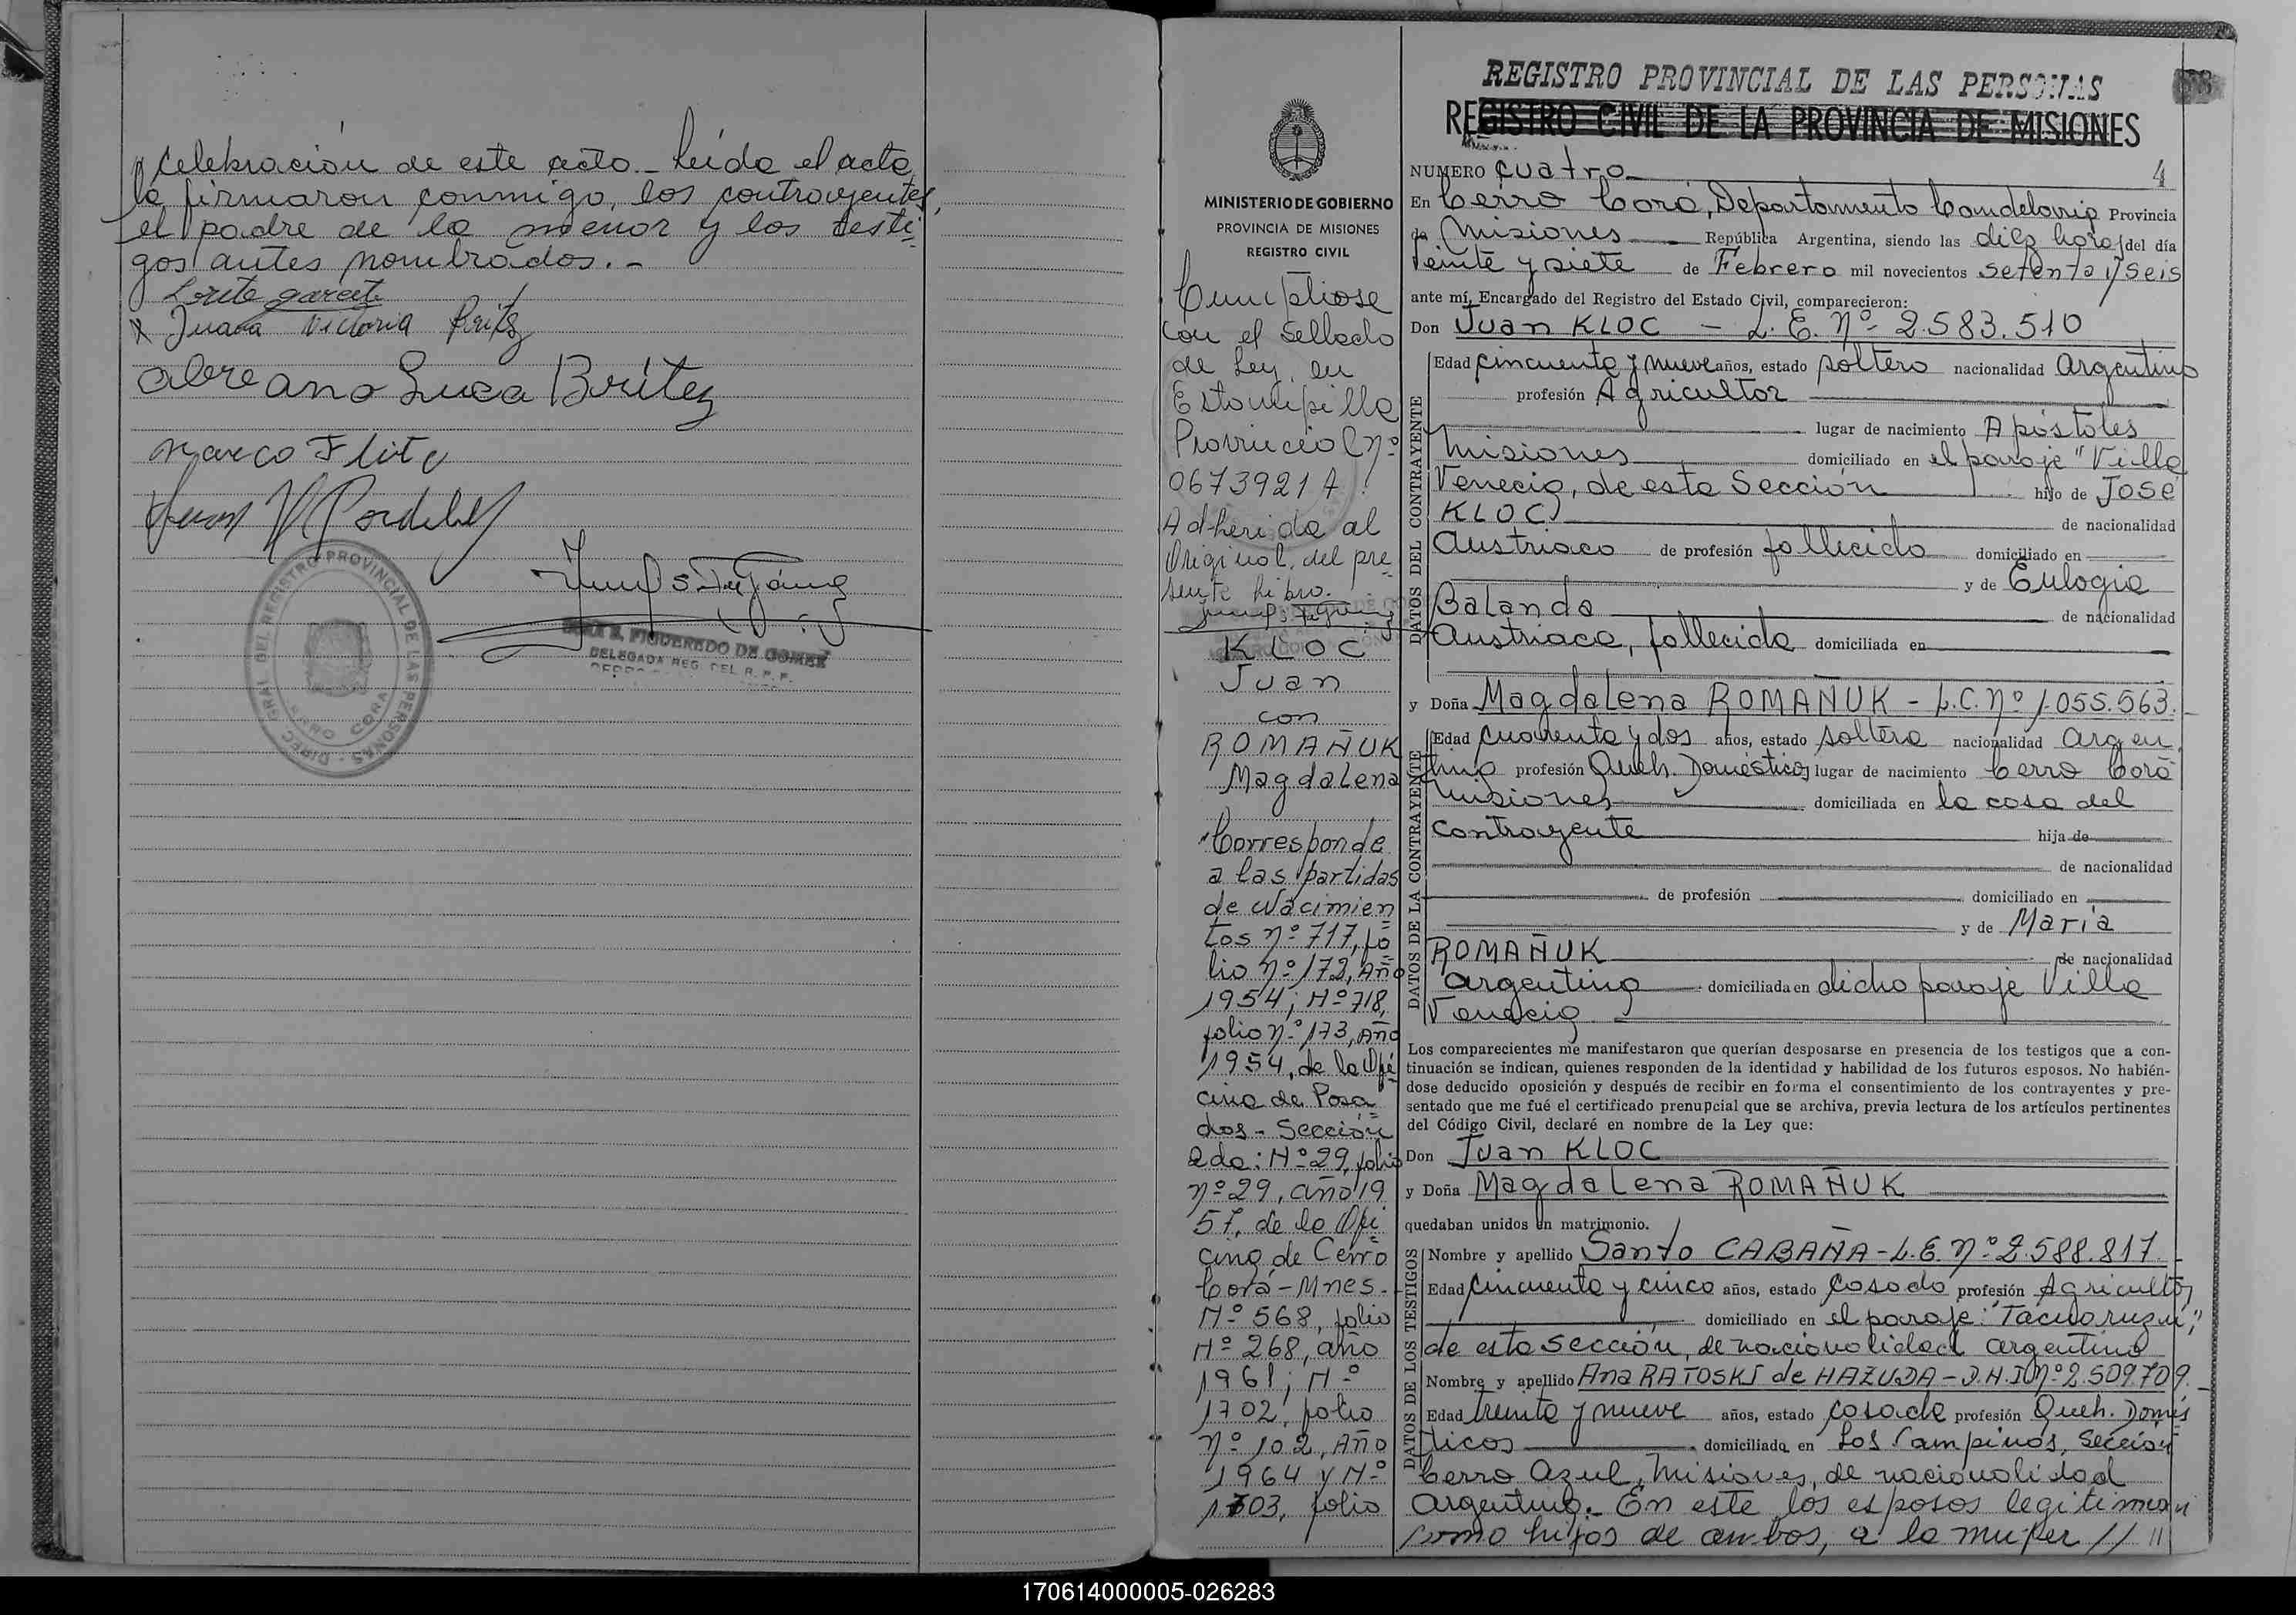 Celebración de este acto.- Leída el acta,
la firmaron conmigo, los contrayentes,
el padre de la menor y los testi-
gos antes nombrados.-
Juana Victoria
Luca Britez
DIREC. GRAL DEL REGISTRO PROVINCIAL DE LAS PERSONAS
CERRO CORA
S. FIGUEREDO DE GOMEZ
DELEGADA REG. DEL R. P. P.
MINISTERIO DE GOBIERNO
PROVINCIA DE MISIONES
REGISTRO CIVIL
Cumpliose
con el sellado
de Ley, en
Estampilla
Provincial nº
0673921 A.
Adherida al
Original del pre-
sente libro.
KLOC
Juan
con
ROMAÑUK
Magdalena
Corresponde
a las partidas
de Nacimien
tos nº 717, fo
lio nº 172, Año
1954; Nº 718,
folio nº 173, Año
1954, de la Ofi
cina de Posa
das - Sección
2da: Nº 29, folio
nº 29, año 19
57, de la Ofi
cina de Cerro
Corá - Mnes.-
Nº 568, folio
Nº 268, año
1961; Nº
1702, folio
nº 102, Año
1964 y Nº
1703, folio
REGISTRO PROVINCIAL DE LAS PERSONAS
REGISTRO CIVIL DE LA PROVINCIA DE MISIONES
NUMERO cuatro 4
En Cerro Corá, Departamento Candelaria Provincia
de Misiones República Argentina, siendo las diez horas del día
veinte y siete de Febrero mil novecientos setenta y seis
ante mí, Encargado del Registro del Estado Civil, comparecieron:
Don Juan KLOC - L.E. nº 2.583.510
DATOS DEL CONTRAYENTE
Edad cincuenta y nueve años, estado soltero nacionalidad Argentino
profesión Agricultor
lugar de nacimiento Apóstoles
Misiones domiciliado en el paraje "Villa
Venecia, de esta Sección hijo de José
KLOC de nacionalidad
Austriaco de profesión fallecido domiciliado en
y de Eulogia
Balanda de nacionalidad
Austriaca, fallecida domiciliada en
y Doña Magdalena ROMAÑUK - L.C. nº 1.055.563.
DATOS DE LA CONTRAYENTE
Edad cuarenta y dos años, estado soltera nacionalidad Argen
tina profesión Queh. Domésticos lugar de nacimiento Cerro Corá
Misiones domiciliada en la casa del
contrayente hija de
de nacionalidad
de profesión domiciliado en
y de María
ROMAÑUK de nacionalidad
Argentina domiciliada en dicho paraje Villa
Venecia
Los comparecientes me manifestaron que querían desposarse en presencia de los testigos que a con-
tinuación se indican, quienes responden de la identidad y habilidad de los futuros esposos. No habién-
dose deducido oposición y después de recibir en forma el consentimiento de los contrayentes y pre-
sentado que me fué el certificado prenupcial que se archiva, previa lectura de los artículos pertinentes
del Código Civil, declaré en nombre de la Ley que:
Don Juan KLOC
y Doña Magdalena ROMAÑUK
quedaban unidos en matrimonio.
DATOS DE LOS TESTIGOS
Nombre y apellido Santo CABAÑA - L.E. nº 2.588.817
Edad cincuenta y cinco años, estado casado profesión Agricultor
domiciliado en el paraje: "Tacuaruzú",
de esta Sección, de nacionalidad argentina
Nombre y apellido Ana RATOSKI de HAZUDA - D.N.I nº 2.509.709.
Edad treinta y nueve años, estado casada profesión Queh. Domés
ticos domiciliada en Los Campinos, Sección
Cerro Azul, Misiones, de nacionalidad
argentina.- En este los esposos legitiman
como hijos de ambos, a la mujer //
170614000005-026283